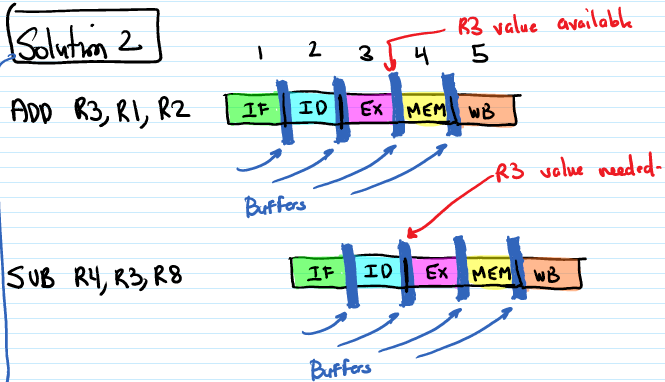 Solution 2
R3 value available
1 2 3 4 5
ADD R3, R1, R2
IF ID EX MEM WB
Buffers
R3 value needed
SUB R4, R3, R8
IF ID EX MEM WB
Buffers